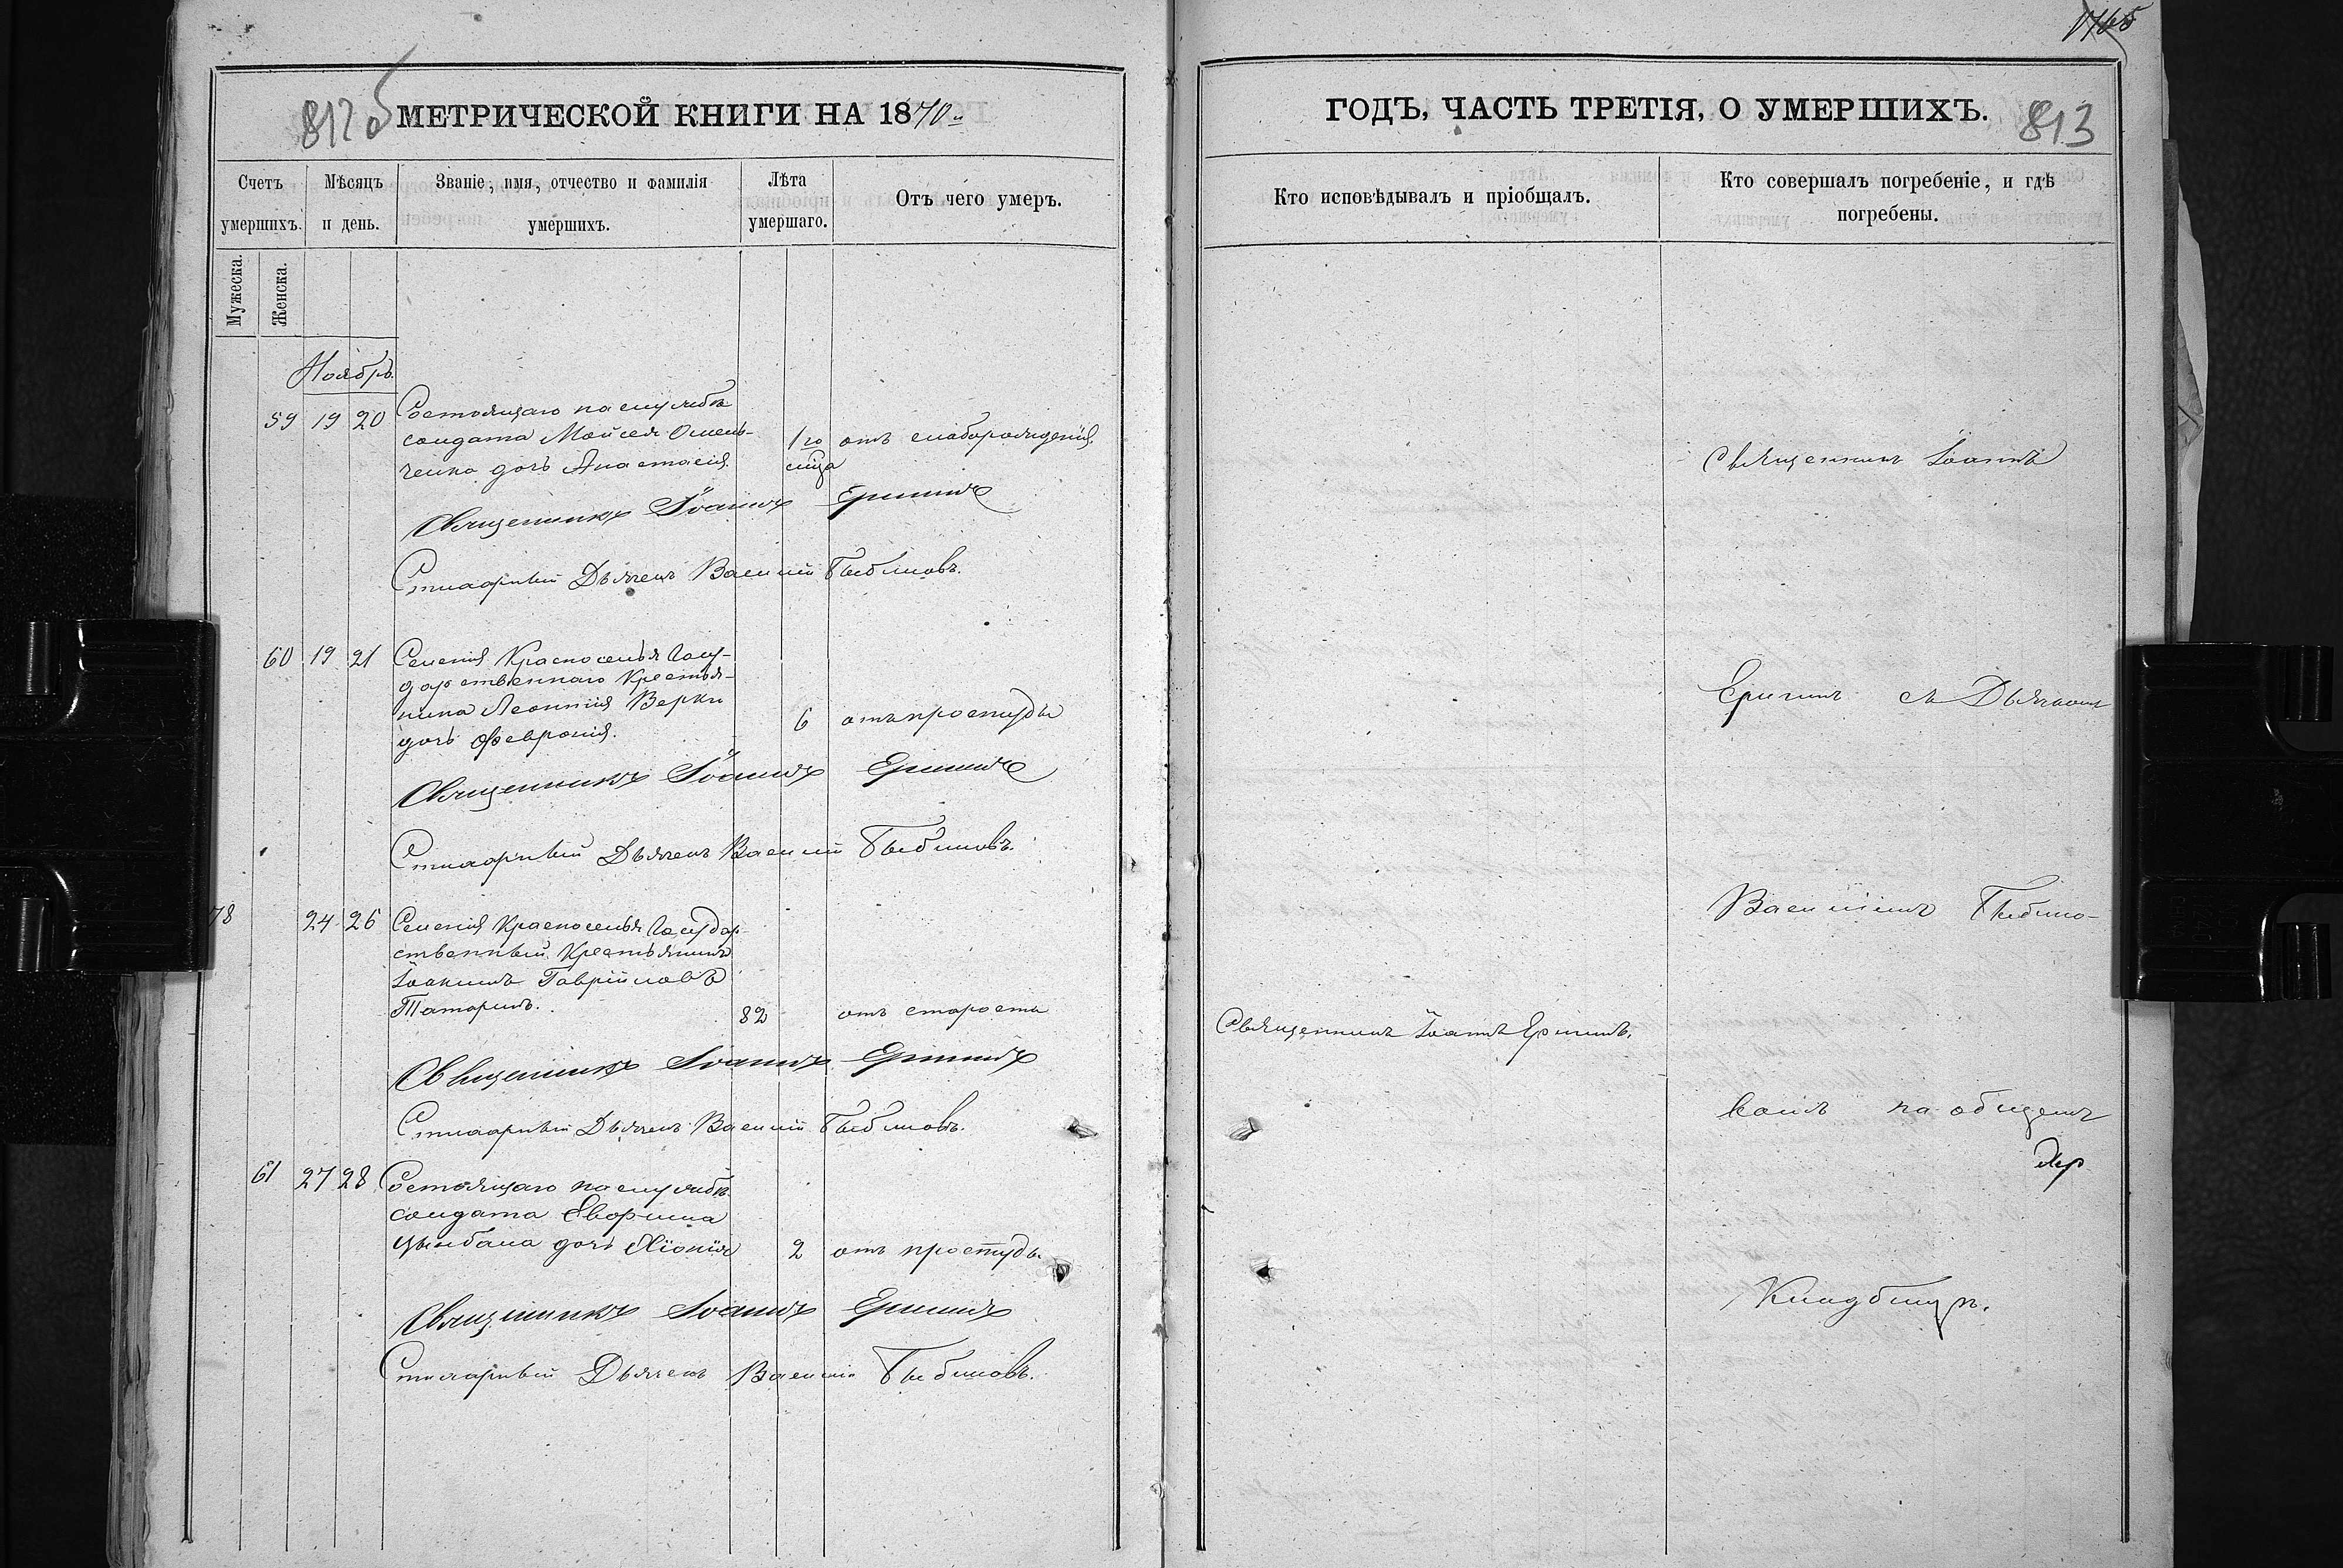 812 об
МЕТРИЧЕСКОЙ КНИГИ НА 1870.
Счетъ умершихъ.
Мѣсяцъ и день.
Званіе, имя, отчество и фамилія умершихъ.
Лѣта умершаго.
Отъ чего умеръ.
Мужеска.
Женска.
Ноябрь
59 19 20 Состоящаго на службѣ
солдата Моисея Омель-
ченка дочь Анастасія.
1го
отъ слаборожденія
Священникъ Іоаннъ
Стихарный Дьячекъ Василій
60 19 21 Селенія Красноселья Госу-
дарственнаго Крестья-
нина Леонтія Верки
дочь Февронія.
6 отъ простуды
Священникъ Іоаннъ
Стихарный Дьячекъ Василій
78 24 26 Селенія Красноселья Государ-
ственный Крестьянинъ
Іоакимъ Гавріиловъ
Татаринъ.
82 отъ старости
Священникъ Іоаннъ
Стихарный Дьячекъ Василій
61 27 28 Состоящаго на службѣ
солдата
Цымбала дочь Хіонія
2 отъ простуды
Священникъ Іоаннъ
Стихарный Дьячекъ Василій
ГОДЪ, ЧАСТЬ ТРЕТІЯ, О УМЕРШИХЪ.
813
Кто исповѣдывалъ и пріобщалъ.
Кто совершалъ погребеніе, и гдѣ погребены.
Священникъ Іоаннъ
съ Дьячкомъ
Василіемъ
Священникъ Іоаннъ
на общемъ
Кладбищѣ.